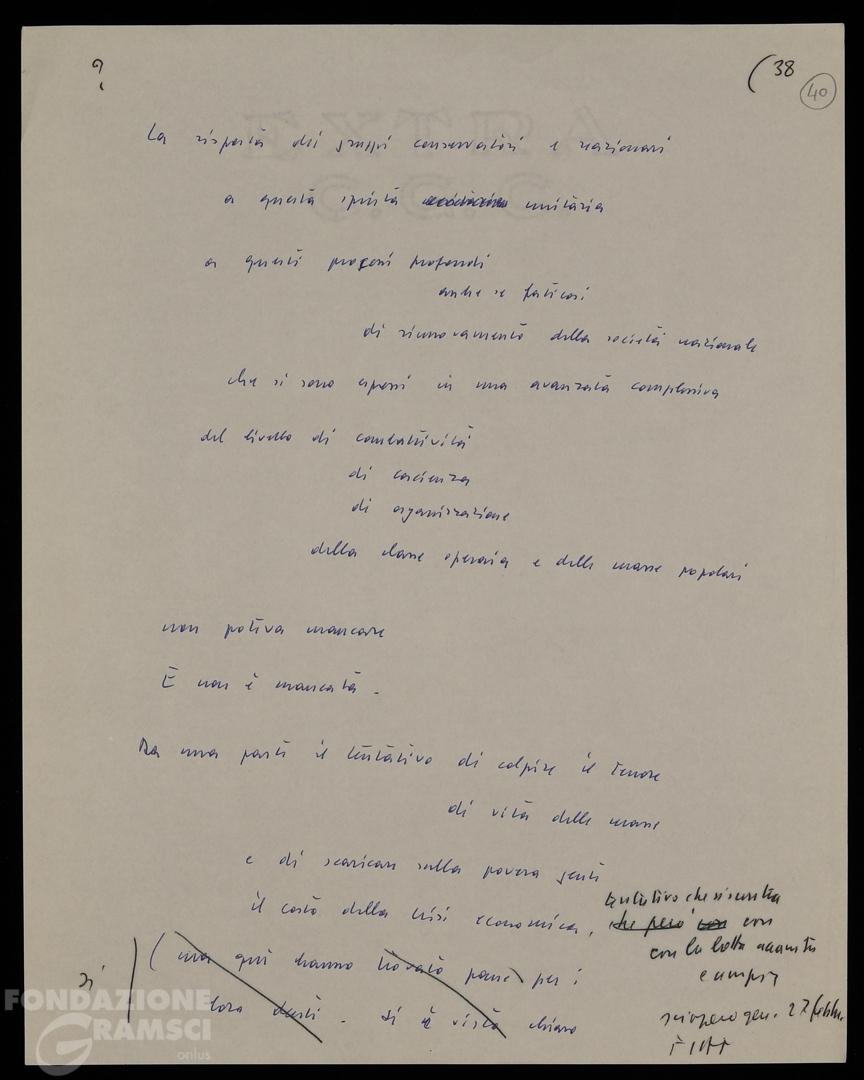 ?
(38
40
La risposta dei gruppi conservatori e reazionari
a questa spinta unitaria
a questi processi profondi
anche se faticosi
di rinnovamento della società nazionale
che si sono espressi in una avanzata complessiva
del livello di combattività
di coscienza
di organizzazione
della classe operaia e delle masse popolari
non poteva mancare
E non è mancata.
Da una parte il tentativo di colpire il tenore
di vita delle masse
e di scaricare sulla povera gente
il costo della crisi economica, tentativo che si scontra
che però con con
con la lotta
e ampia
sciopero gen. 27 febbr.
si
(ma qui hanno trovato pane) per i
loro denti. Si è visto chiaro
FONDAZIONE
GRAMSCI
onlus